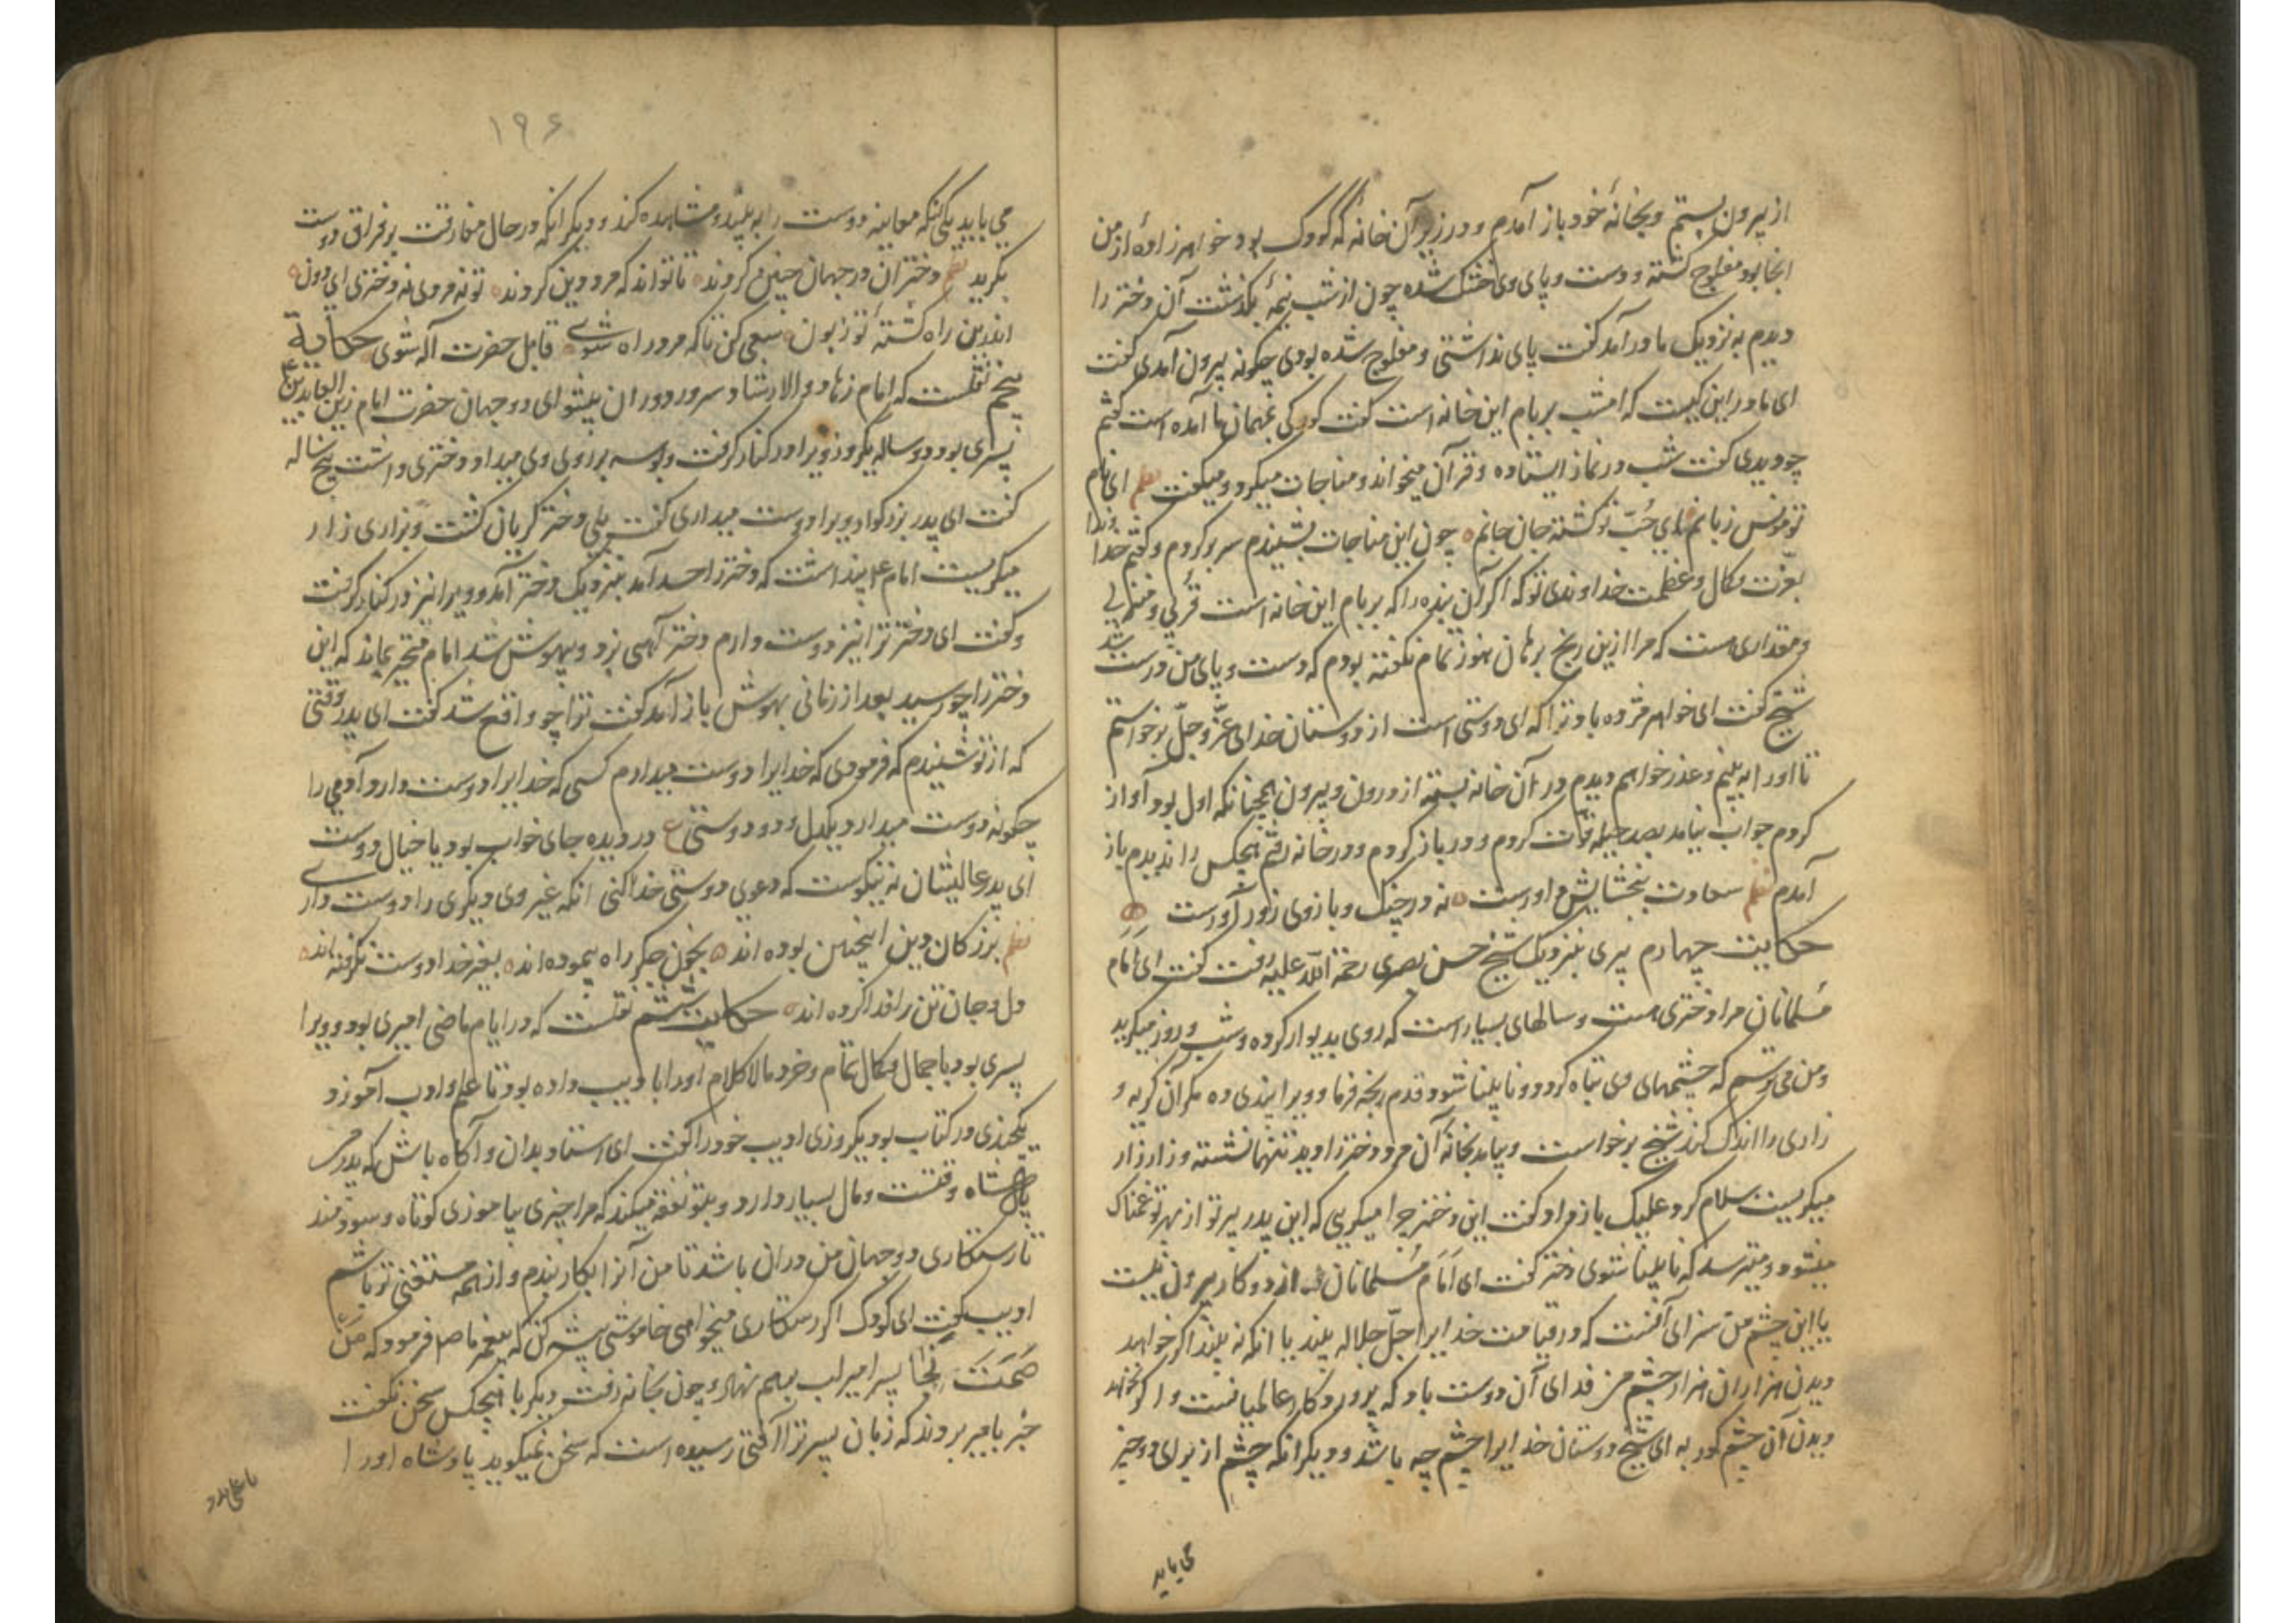 از بیرون بستم و بخانهٔ خود باز آمدم و در زیر آن خانه که کودک بود خواهرزادهٔ از من
انجا بود مفلوج کشته و دست و پای وی خشک شده چون از شب نیمهٔ بکذشت آن دختر را
دیدم به نزدیک ما درآمد کفت پای نداشتی و مفلوج شده بودی چکونه بیرون آمدی کفت
ای مادر این کیست که امشب بر بام این خانه است کفت کودکی مهمان ما آمده است کفتم
چو دیدی کفت شب در نماز ایستاده و قرآن میخواند و مناجات میکرد و میکفت نظم ای نام
تو مونس زبانم ای حُبّ تو کشته جان جانم چون این مناجات بشنیدم سر برکردم و کفتم خداوندا
بعزّت و کمال و عظمت خداوندی تو که اکر آن بنده را که بر بام این خانه است قربی و منزلتی
و مقداری هست که مرا ازین رنج برهان هنوز تمام نکفته بودم که دست و پای من درست شد
شیخ کفت ای خواهر مژده باد ترا که ای دوستی است از دوستان خدای عزّ و جلّ برخواستم
تا او را به بینم و عذر خواهم دیدم در آن خانه بسته از درون و بیرون همچنانکه اول بود آواز
کردم جواب نیامد بصد حیله در باز کردم و در خانه رفتم هیچکس را ندیدم باز
آمدم نظم سعادت ببخشایش داورست نه در چنک و بازوی زور آورست
حکایت چهارم پیری بنزدیک شیخ حسن بصری رحمة الله علیه رفت کفت ای امام
مسلمانان مرا دختری هست و سالهای بسیار است که روی بدیوار کرده و شب و روز میکرید
و من می ترسم که چشمهای وی تباه کردد و نابینا شود قدم رنجه فرما و ویرا پندی ده مکر آن کریه و
زاری را اندک کند شیخ برخواست و بیامد بخانهٔ آن مرد و دختر را دید تنها نشسته و زار زار
میکریست سلام کرد علیک باز داد کفت این دختر چرا میکریی که این پدر پیر تو از بهر تو غمناک
میشود و میترسد که نابینا شوی دختر کفت ای امام مسلمانان از دو کار بیرون نیست
یا این چشم من سزای آنست که در قیامت خدایرا جلّ جلاله بیند یا انکه نه بیند اکر خواهد
دیدن هزاران هزار چشم من فدای آن دوست باد که پروردکار عالمیانست و اکر نخواهد
دیدن آن چشم کور به ای شیخ دوستان خدایرا چشم چه باشد و دیکر انکه چشم از برای دو چیز
می باید
۱۹۶
می باید یکی انکه معاینه دوست را به بیند و مشاهده کند و دیکر انکه در حال مفارقت بر فراق دوست
بکرید نظم دختران در جهان چنین کردند تا تواند که مرد دین کردند تو نه مردی نه دختری ای دون
اندرین راه کشتهٔ تو زبون سعی کن تا که مرد راه شوی قابل حضرت اله شوی حکایة
پنجم نقلست که امام زهاد والارشاد سرور دوران پیشوای دو جهان حضرت امام زین العابدین ع
پسری بود دو ساله یکروز ویرا در کنار کرفت و بوسه بر روی وی میداد و دختری داشت پنج ساله
کفت ای پدر بزرکوار ویرا دوست میداری کفت بلی دختر کریان کشت و بزاری زار
میکریست امام ع پنداشت که دختر را حسد آمد بنزدیک دختر آمد و ویرا نیز در کنار کرفت
و کفت ای دختر ترا نیز دوست دارم دختر آهی بزد و بیهوش شد امام متحیر بماند که این
دختر را چو رسید بعد از زمانی بهوش باز آمد کفت ترا چو واقع شد کفت ای پدر وقتی
که از تو شنیدم که فرمودی که خدایرا دوست میدارم کسی که خدایرا دوست دارد آدمی را
چکونه دوست میدارد یکدل و دو دوستی ع در دیده جای خواب بود یا خیال دوست
ای پدر عالیشان نه نیکوست که دعوی دوستی خدا کنی انکه غیر وی دیکری را دوست داری
نظم بزرکان دین اینچنین بوده اند بخون جکر راه پیموده اند بغیر خدا دوست نکرفته اند
دل و جان تن را فدا کرده اند حکایت ششم نقلست که در ایام ماضی امیری بود و ویرا
پسری بود با جمال و کمال تمام و خرد مالا کلام او را با ادیب داده بود تا علم و ادب آموزد
یکچندی در کتاب بود یکروزی ادیب خود را کفت ای استاد بدان و آکاه باش که پدر من
پادشاه وقتست و مال بسیار دارد و بتو نفقه میکند که مرا چیزی بیاموزی کوتاه و سودمند
تا رستکاری دو جهان من در ان باشد تا من آنرا بکار بندم و از همه مستغنی تر باشم
ادیب کفت ای کودک اکر رستکاری میخواهی خاموشی پیشه کن که پیغمبر ما صلعم فرمود که مَنْ
صَمَتَ نَجَا پسر امیر لب بهم نهاد و چون بخانه رفت دیکر با هیچکس سخن نکفت
خبر بامیر بردند که زبان پسر ترا آفتی رسیده است که سخن نمیکوید پادشاه او را